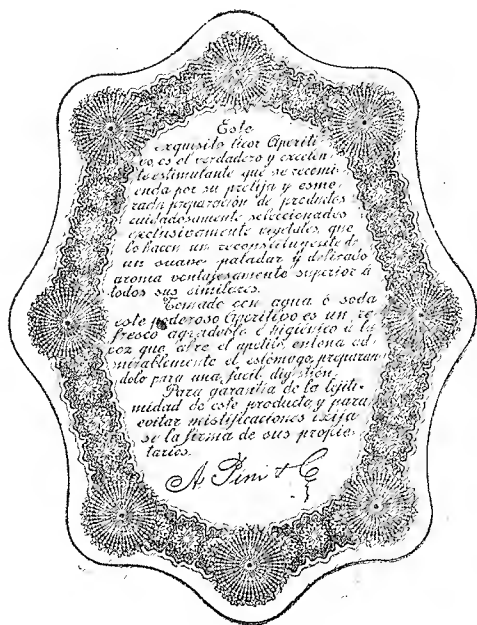 Este
exquisito licor Aperiti-
vo, es el verdadero y excelen-
te estimulante que se recomi-
enda por su prolija y esme-
rada preparación de productos
cuidadosamente seleccionados
exclusivamente vegetales, que
lo hacen un reconstituyente de
un suave paladar y delicado
aroma ventajosamente superior á
todos sus similares.
Tomado con agua ó soda
este poderoso Aperitivo es un re-
fresco agradable é higiénico á la
vez que abre el apetito, entona ad-
mirablemente el estómago preparan-
dolo para una facil digestión.
Para garantia de la lejiti-
midad de este producto y para
evitar mistificaciones exija
se la firma de sus propie-
tarios.
A Pini & C